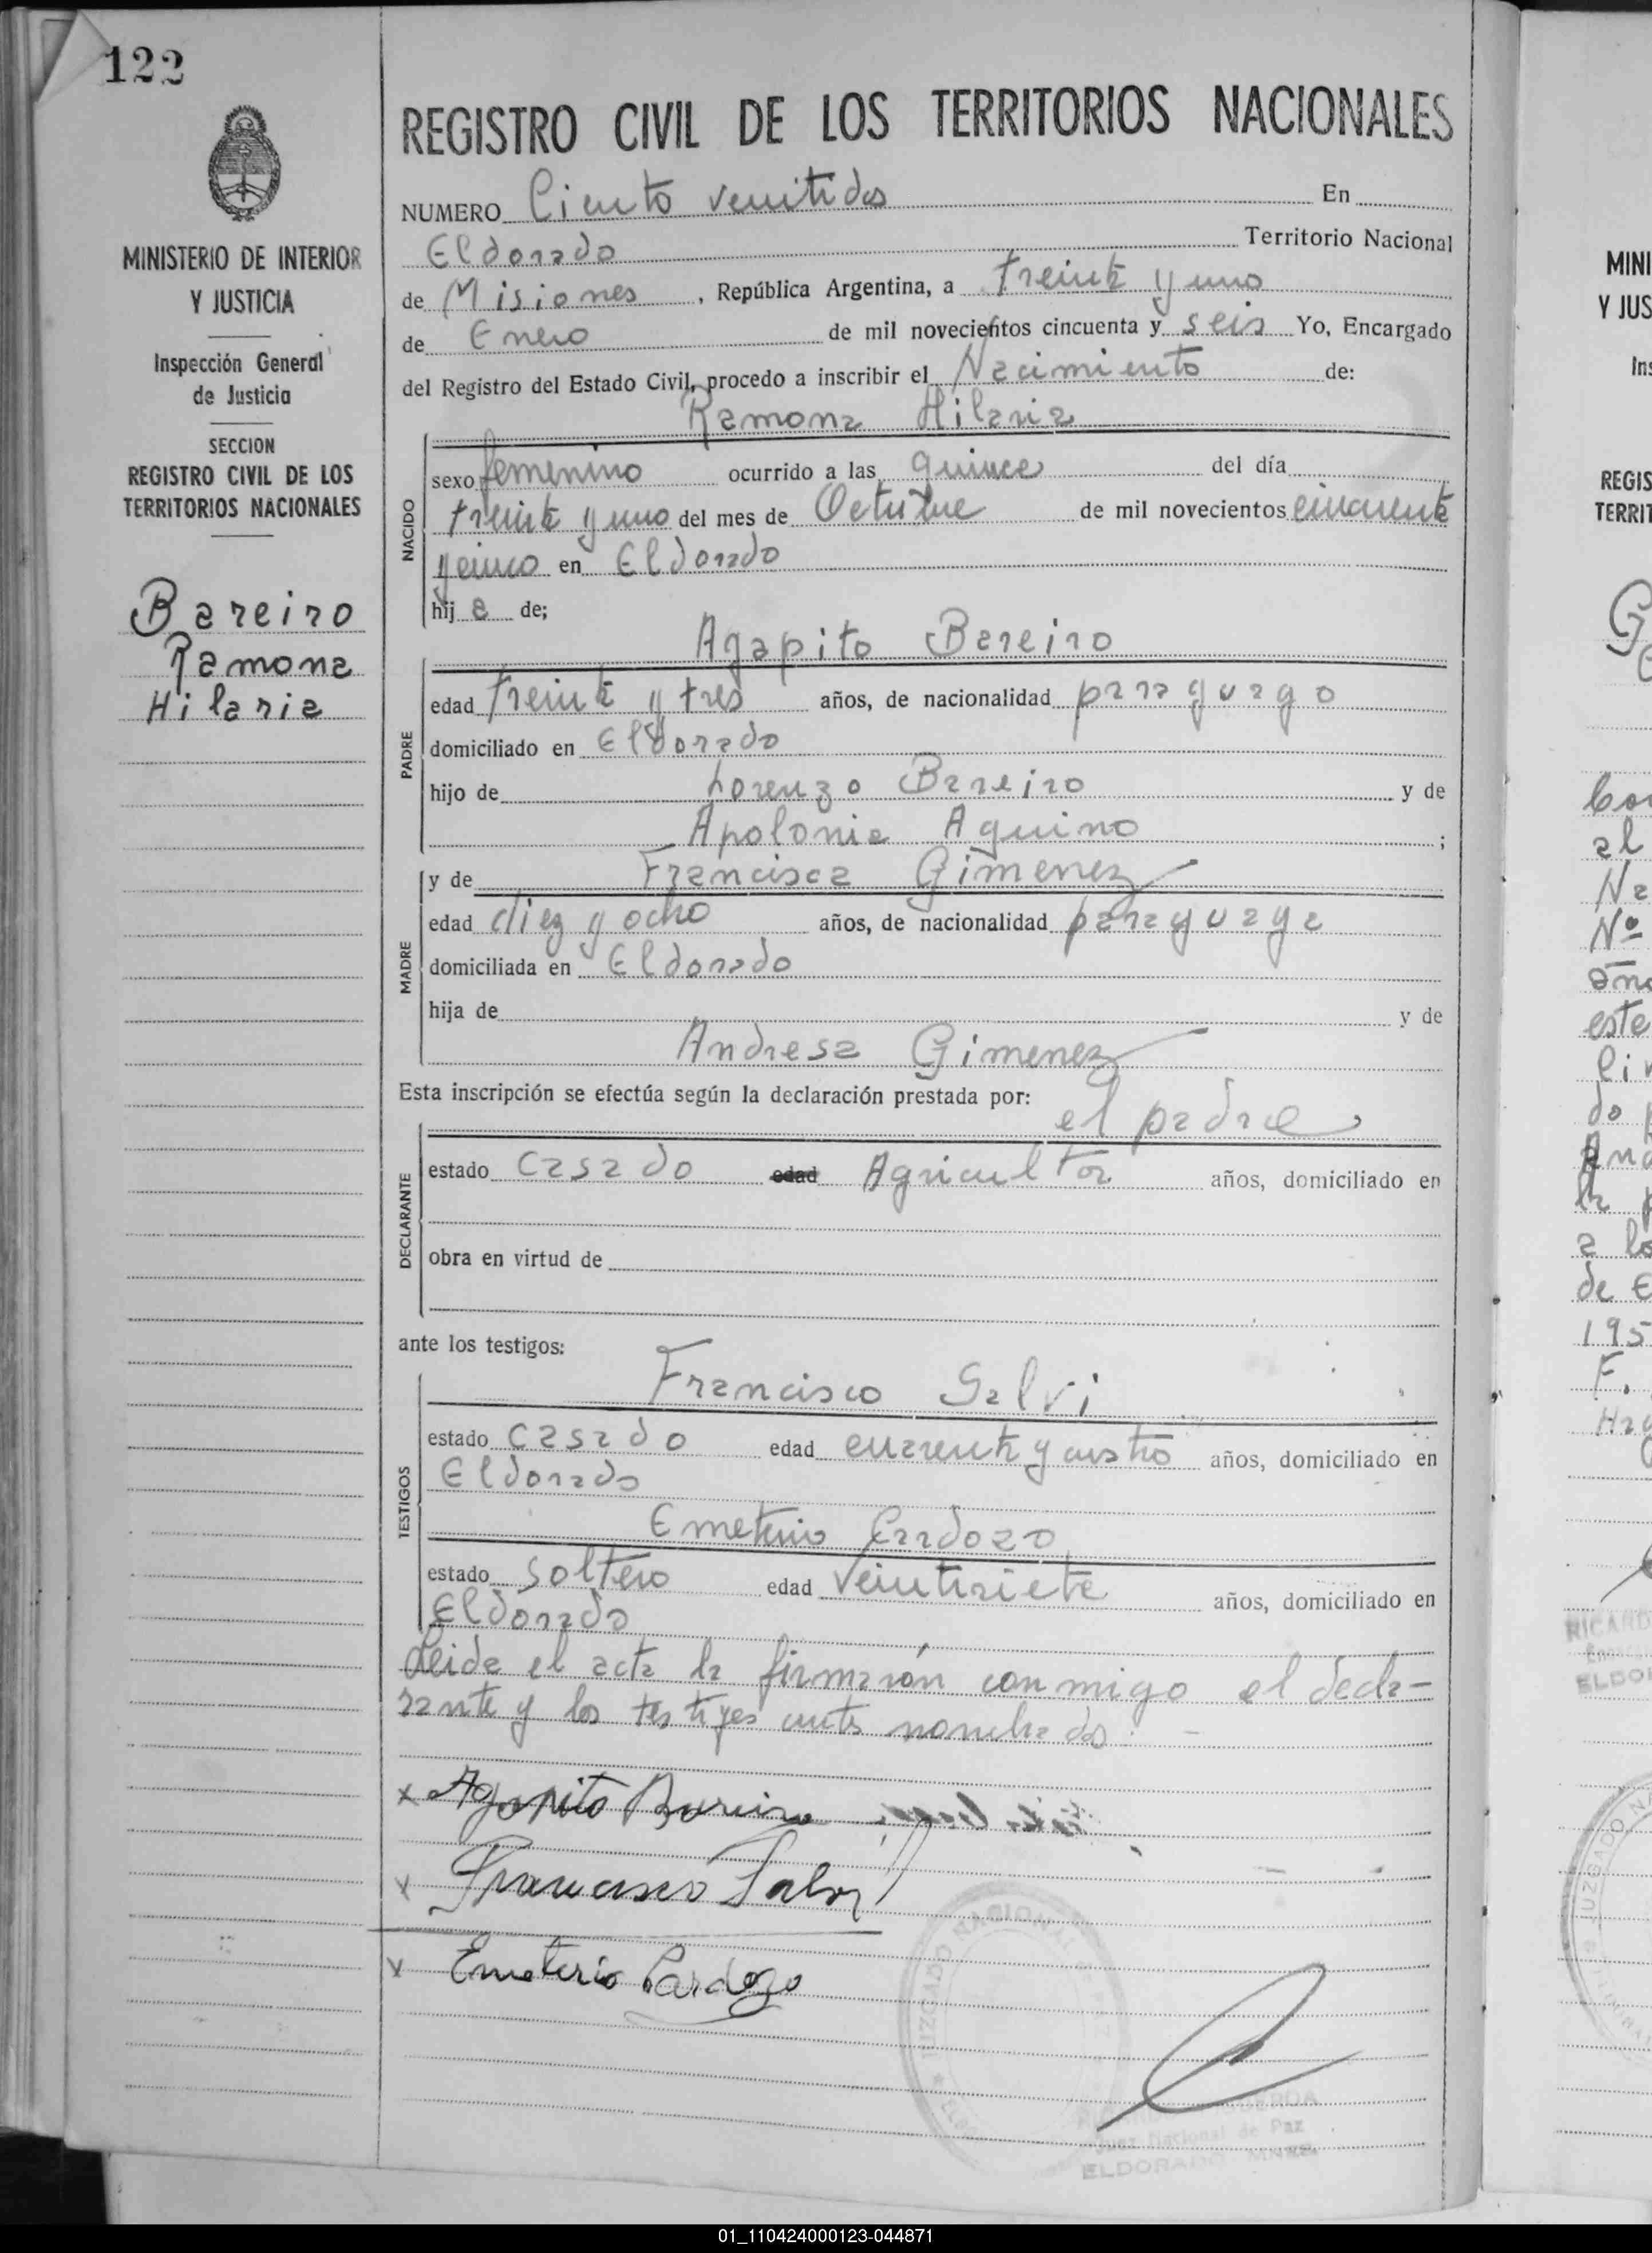 122
MINISTERIO DE INTERIOR
Y JUSTICIA
Inspección General
de Justicia
SECCION
REGISTRO CIVIL DE LOS
TERRITORIOS NACIONALES
Bareiro
Ramona
Hilaria
REGISTRO CIVIL DE LOS TERRITORIOS NACIONALES
NUMERO Ciento venitidos En
Eldorado Territorio Nacional
de Misiones , República Argentina, a treinta y uno
de Enero de mil novecientos cincuenta y seis Yo, Encargado
del Registro del Estado Civil, procedo a inscribir el Nacimiento de:
Ramona Hilaria
NACIDO
sexo femenino ocurrido a las quince del día
treinta y uno del mes de Octubre de mil novecientos cincuenta
y cinco en Eldorado
hij a de;
Agapito Bareiro
PADRE
edad treinta y tres años, de nacionalidad paraguayo
domiciliado en Eldorado
hijo de Lorenzo Bareiro y de
Apolonia Aquino ;
MADRE
y de Francisca Gimenez
edad diez y ocho años, de nacionalidad paraguaya
domiciliada en Eldorado
hija de y de
Andresa Gimenez
Esta inscripción se efectúa según la declaración prestada por:
el padre
DECLARANTE
estado casado edad Agricultor años, domiciliado en
obra en virtud de
ante los testigos:
Francisco Salvi
TESTIGOS
estado casado edad cuarenta y cuatro años, domiciliado en
Eldorado
Emeterio Cardozo
estado soltero edad veintisiete años, domiciliado en
Eldorado
Leida el acta la firmarón conmigo el decla-
rante y los testigos ante nombrados. -
x Agapito Bareiro
x Francisco Salvi
x Emeterio Cardozo
JUZGADO NACIONAL
Juez Nacional de Paz
ELDORADO MNES.
MINI
Y JUS
Ins
REGIS
TERRIT
al
Nº
este
de E
195
F.
RICARD
ELDO
01_110424000123-044871